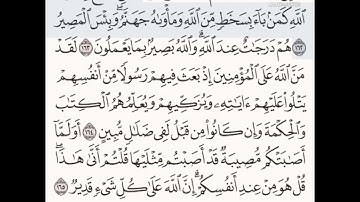 ٱللَّهِ كَمَنۢ بَآءَ بِسَخَطٍ مِّنَ ٱللَّهِ وَمَأْوَىٰهُ جَهَنَّمُ ۚ وَبِئْسَ ٱلْمَصِيرُ
١٦٢ هُمْ دَرَجَٰتٌ عِندَ ٱللَّهِ ۗ وَٱللَّهُ بَصِيرٌۢ بِمَا يَعْمَلُونَ ١٦٣ لَقَدْ
مَنَّ ٱللَّهُ عَلَى ٱلْمُؤْمِنِينَ إِذْ بَعَثَ فِيهِمْ رَسُولًا مِّنْ أَنفُسِهِمْ
يَتْلُوا۟ عَلَيْهِمْ ءَايَٰتِهِۦ وَيُزَكِّيهِمْ وَيُعَلِّمُهُمُ ٱلْكِتَٰبَ
وَٱلْحِكْمَةَ وَإِن كَانُوا۟ مِن قَبْلُ لَفِى ضَلَٰلٍ مُّبِينٍ ١٦٤ أَوَلَمَّآ
أَصَٰبَتْكُم مُّصِيبَةٌ قَدْ أَصَبْتُم مِّثْلَيْهَا قُلْتُمْ أَنَّىٰ هَٰذَا ۖ
قُلْ هُوَ مِنْ عِندِ أَنفُسِكُمْ ۗ إِنَّ ٱللَّهَ عَلَىٰ كُلِّ شَىْءٍ قَدِيرٌ ١٦٥